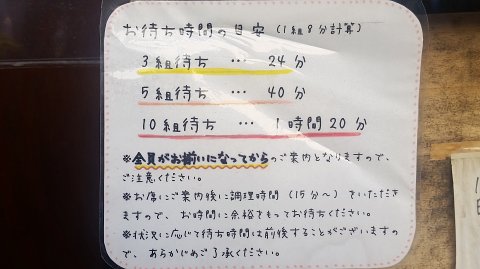 お待ち時間の目安(1組8分計算)
3組待ち … 24分
5組待ち … 40分
10組待ち … 1時間20分
※全員がお揃いになってからのご案内となりますので、
ご注意ください。
※お席にご案内後に調理時間(15分〜)をいただき
ますので、お時間に余裕をもってお待ちください。
※状況に応じて待ち時間は前後することがございますの
で、あらかじめご了承ください。